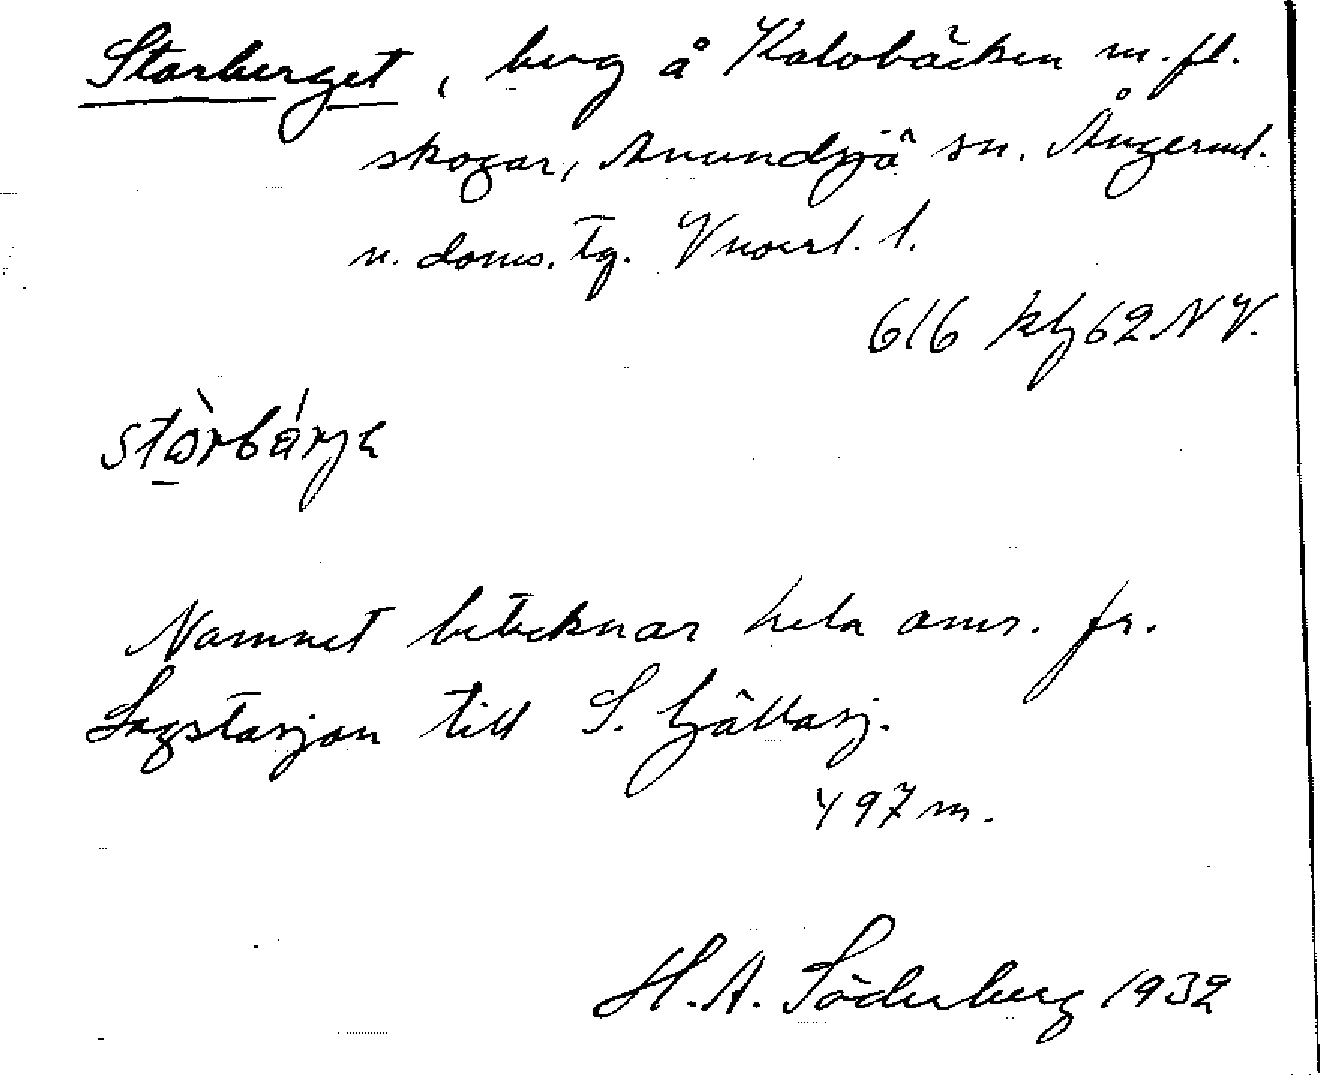 Storberget, berg å Kalvbäcken m.fl.
skogar, Anundsjö sn. Ångerml.
n. doms. tg. Vnorrl. l.
616 kbj 62 NV.
stòrbárje
Namnet betecknar hela omr. fr.
Lagstasjön till S. Gällasj.
497 m.
H.A. Söderberg 1932